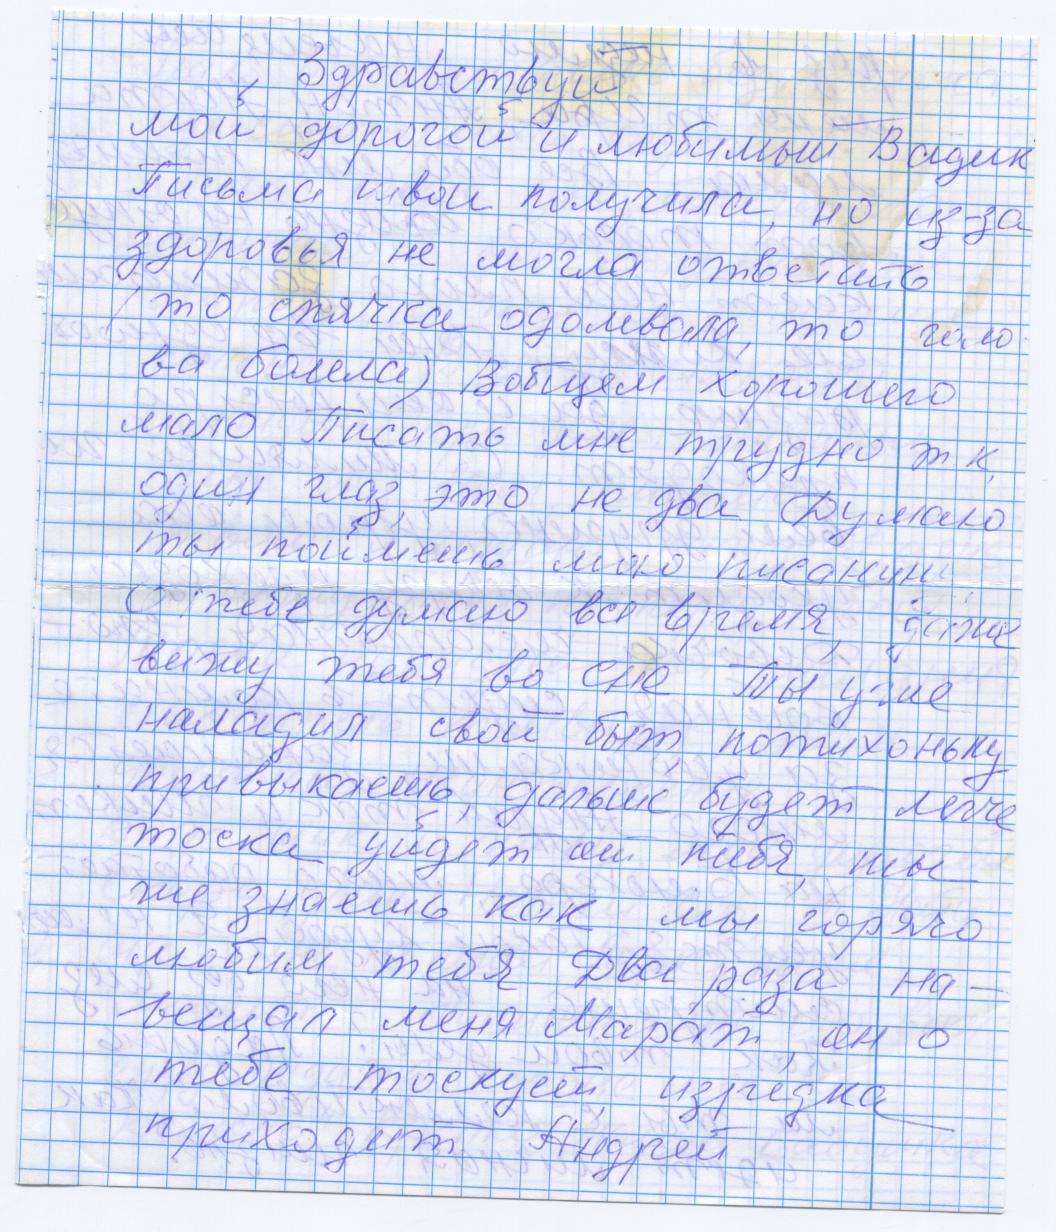 Здравствуй
мой дорогой и любимый Вадик
Письма твои получила, но из-за
здоровья не могла ответить
(то спячка одолевала, то голо-
ва болела) Вобщем хорошего
мало Писать мне трудно т к
один глаз, это не два Думаю
ты поймешь мою писанину
О тебе думаю все время, даже
вижу тебя во сне Ты уже
наладил свой быт, потихоньку
привыкаешь, дальше будет легче
тоска уйдет от тебя, ты
же знаешь как мы горячо
любим тебя Два раза на-
вещал меня Марат, он о
тебе тоскует, изредка
приходит Андрей